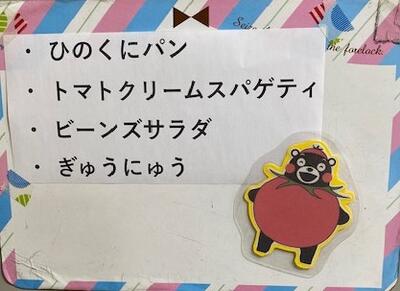 Seize th
me forelock.
・ ひのくにパン
・ トマトクリームスパゲティ
・ ビーンズサラダ
・ ぎゅうにゅう